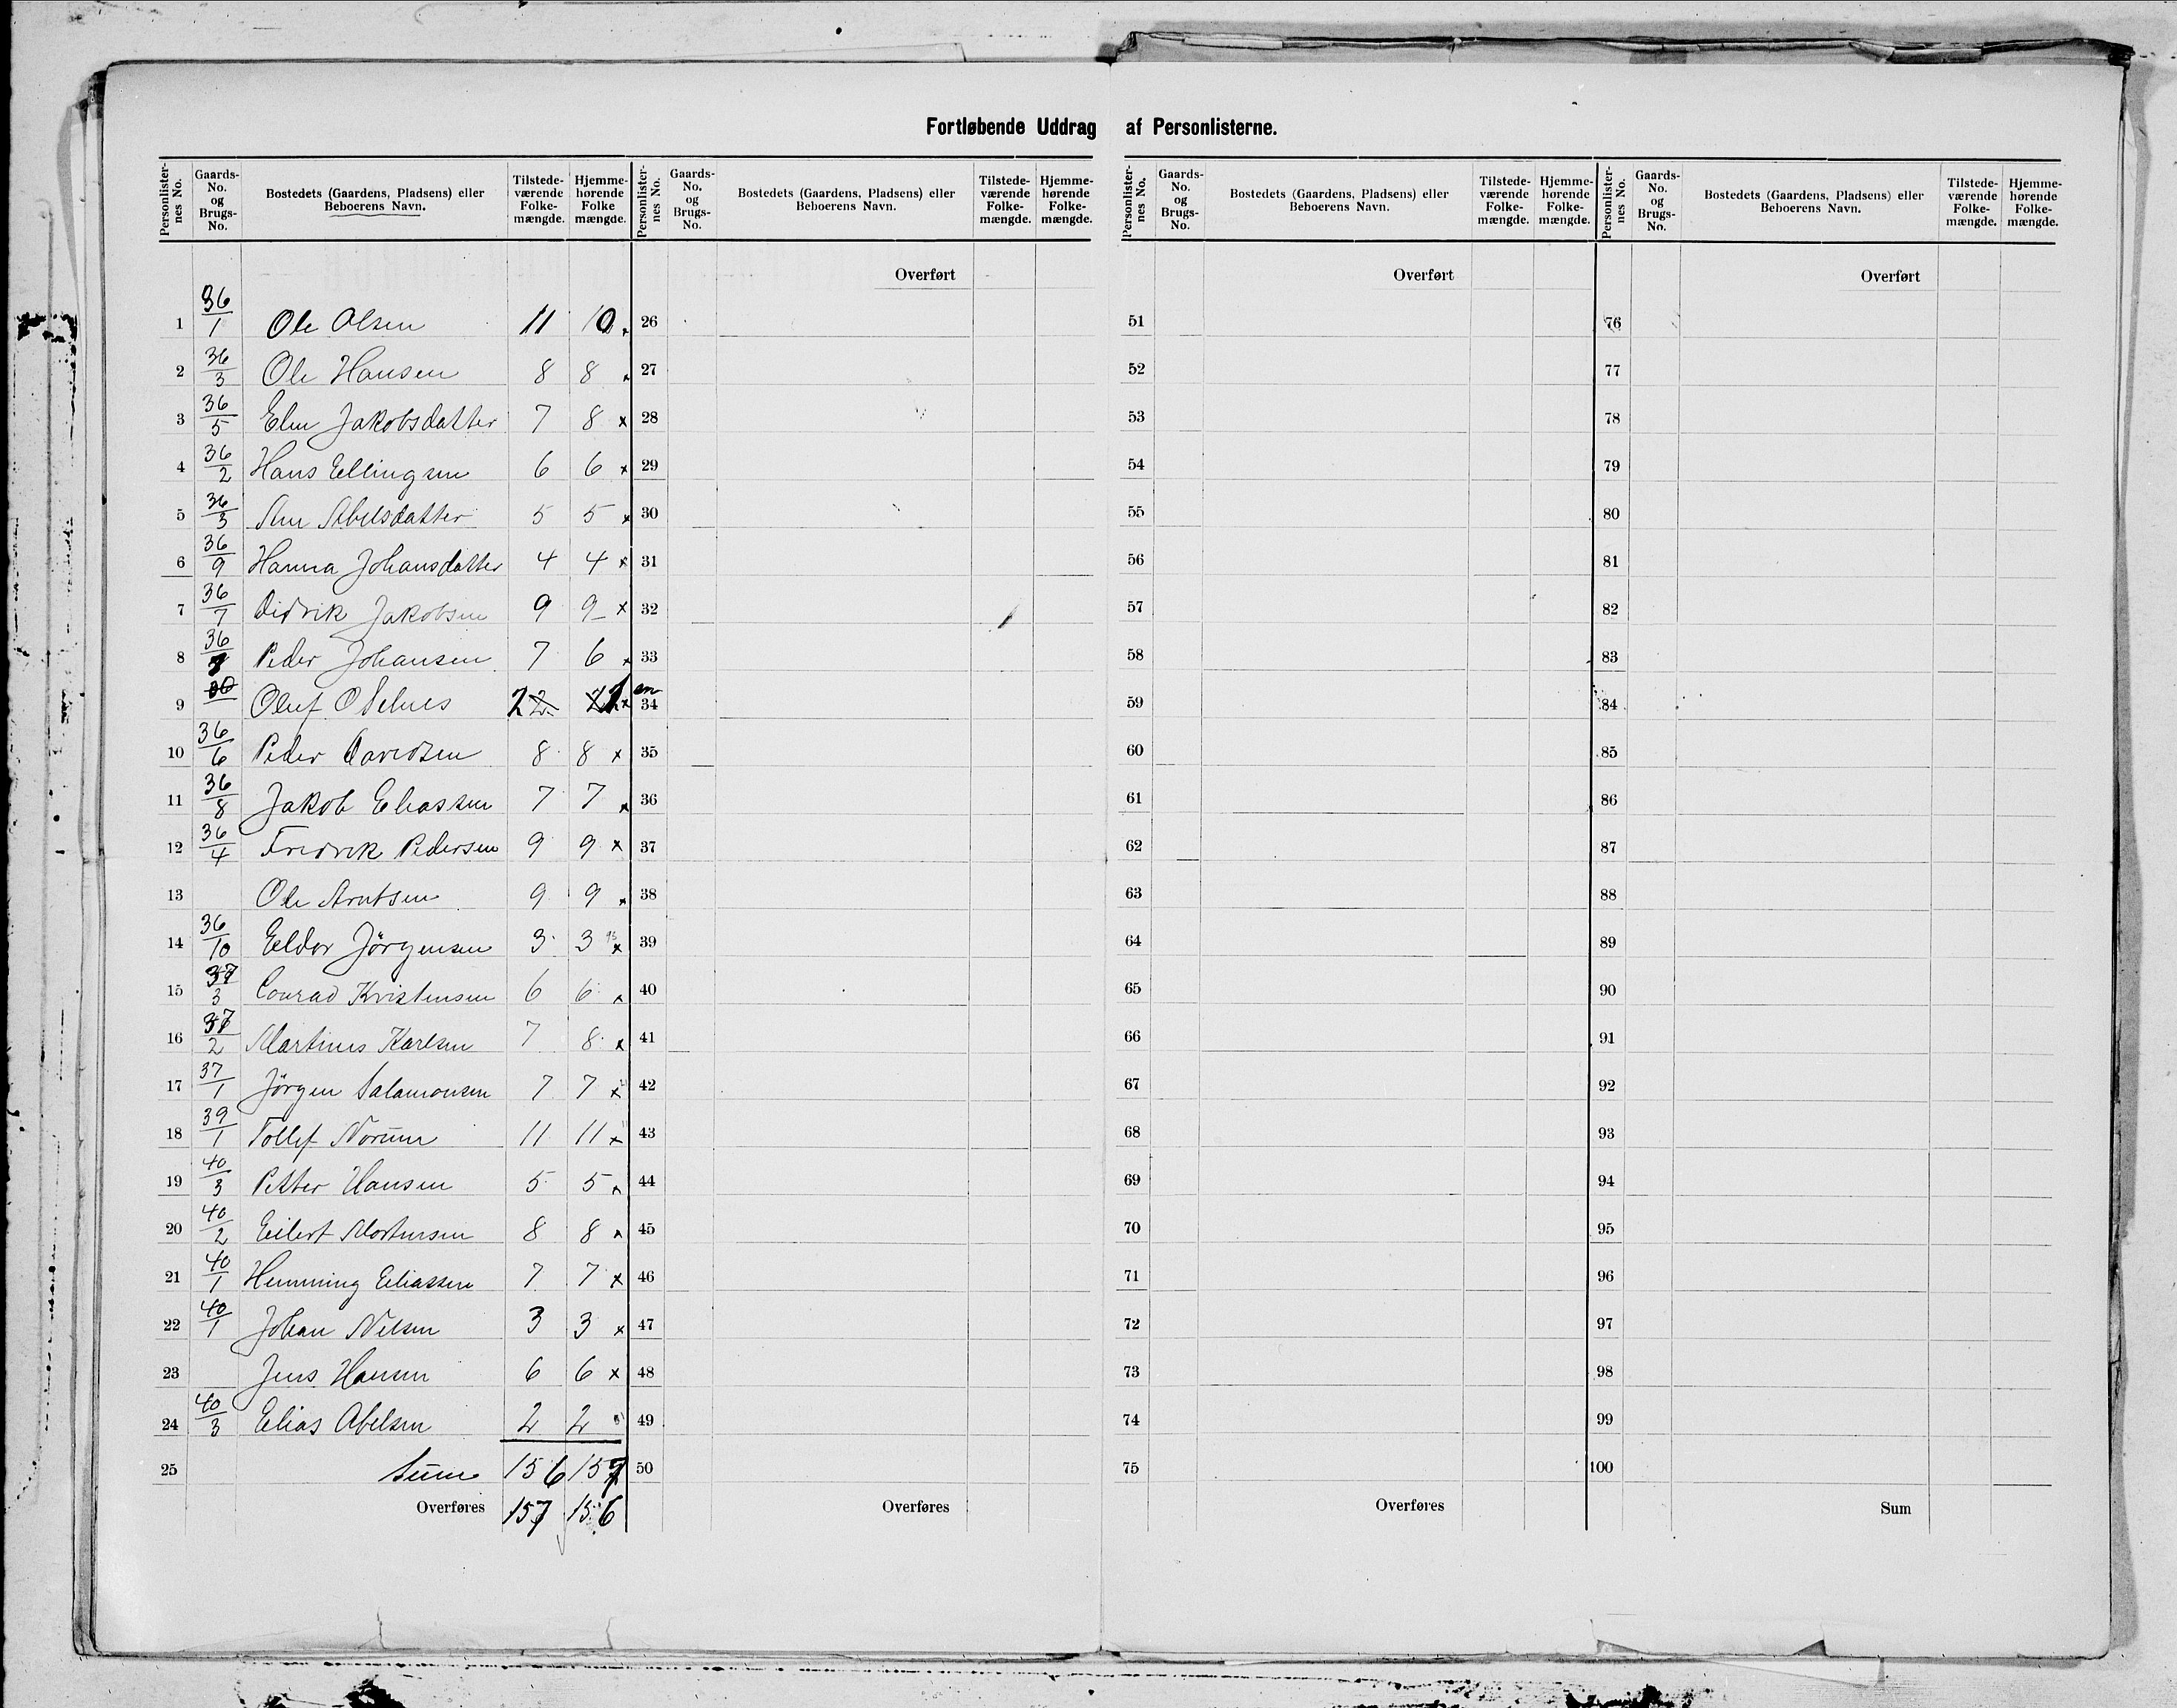 Fortløbende Uddrag af Personlisterne.
Personlister-nes No. | Gaards-No. og Brugs-No. | Bostedets (Gaardens, Pladsens) eller Beboerens Navn. | Tilstede-værende Folke-mængde. | Hjemme-hørende Folke mængde.
Personlister-nes No. | Gaards-No. og Brugs-No. | Bostedets (Gaardens, Pladsens) eller Beboerens Navn. | Tilstede-værende Folke-mængde. | Hjemme-hørende Folke-mængde.
Personlister-nes No. | Gaards-No. og Brugs-No. | Bostedets (Gaardens, Pladsens) eller Beboerens Navn. | Tilstede-værende Folke-mængde. | Hjemme-hørende Folke-mængde.
Personlister-nes No. | Gaards-No. og Brugs-No. | Bostedets (Gaardens, Pladsens) eller Beboerens Navn. | Tilstede-værende Folke-mængde. | Hjemme-hørende Folke-mængde.
Overført Overført Overført
1 36/1 Ole Olsen 11 10 26 51 76
2 36/3 Ole Hansen 8 8 x 27 52 77
3 36/5 Elen Jakobsdatter 7 8 x 28 53 78
4 36/2 Hans Ellingsen 6 6 x 29 54 79
5 36/3 Ane Abelsdatter 5 5 x 30 55 80
6 36/9 Hanna Johansdatter 4 4 x 31 56 81
7 36/7 Didrik Jakobsen 9 9 x 32 57 82
8 36/ Peder Johansen 7 6 x 33 58 83
9 Oluf O 2 x 34 59 84
10 36/6 Peder Davidsen 8 8 x 35 60 85
11 36/8 Jakob Eliassen 7 7 x 36 61 86
12 36/4 Fredrik Pedersen 9 9 x 37 62 87
13 Ole Arntsen 9 9 x 38 63 88
14 36/10 Eldor Jörgensen 3 3 x 39 64 89
15 37/3 Conrad Kristensen 6 6 x 40 65 90
16 37/2 Martinus Karlsen 7 8 x 41 66 91
17 37/1 Jörgen Salamonsen 7 7 x 42 67 92
18 39/1 Tollef Norum 11 11 x 43 68 93
19 40/3 Petter Hansen 5 5 x 44 69 94
20 40/2 Eilert Mortensen 8 8 x 45 70 95
21 40/1 Hemming Eliassen 7 7 x 46 71 96
22 40/1 Johan Nilsen 3 3 x 47 72 97
23 Jens Hansen 6 6 x 48 73 98
24 40/3 Elias Abelsen 2 2 49 74 99
25 Sum 156 157 50 75 100
Overføres 157 156 Overføres Overføres Sum